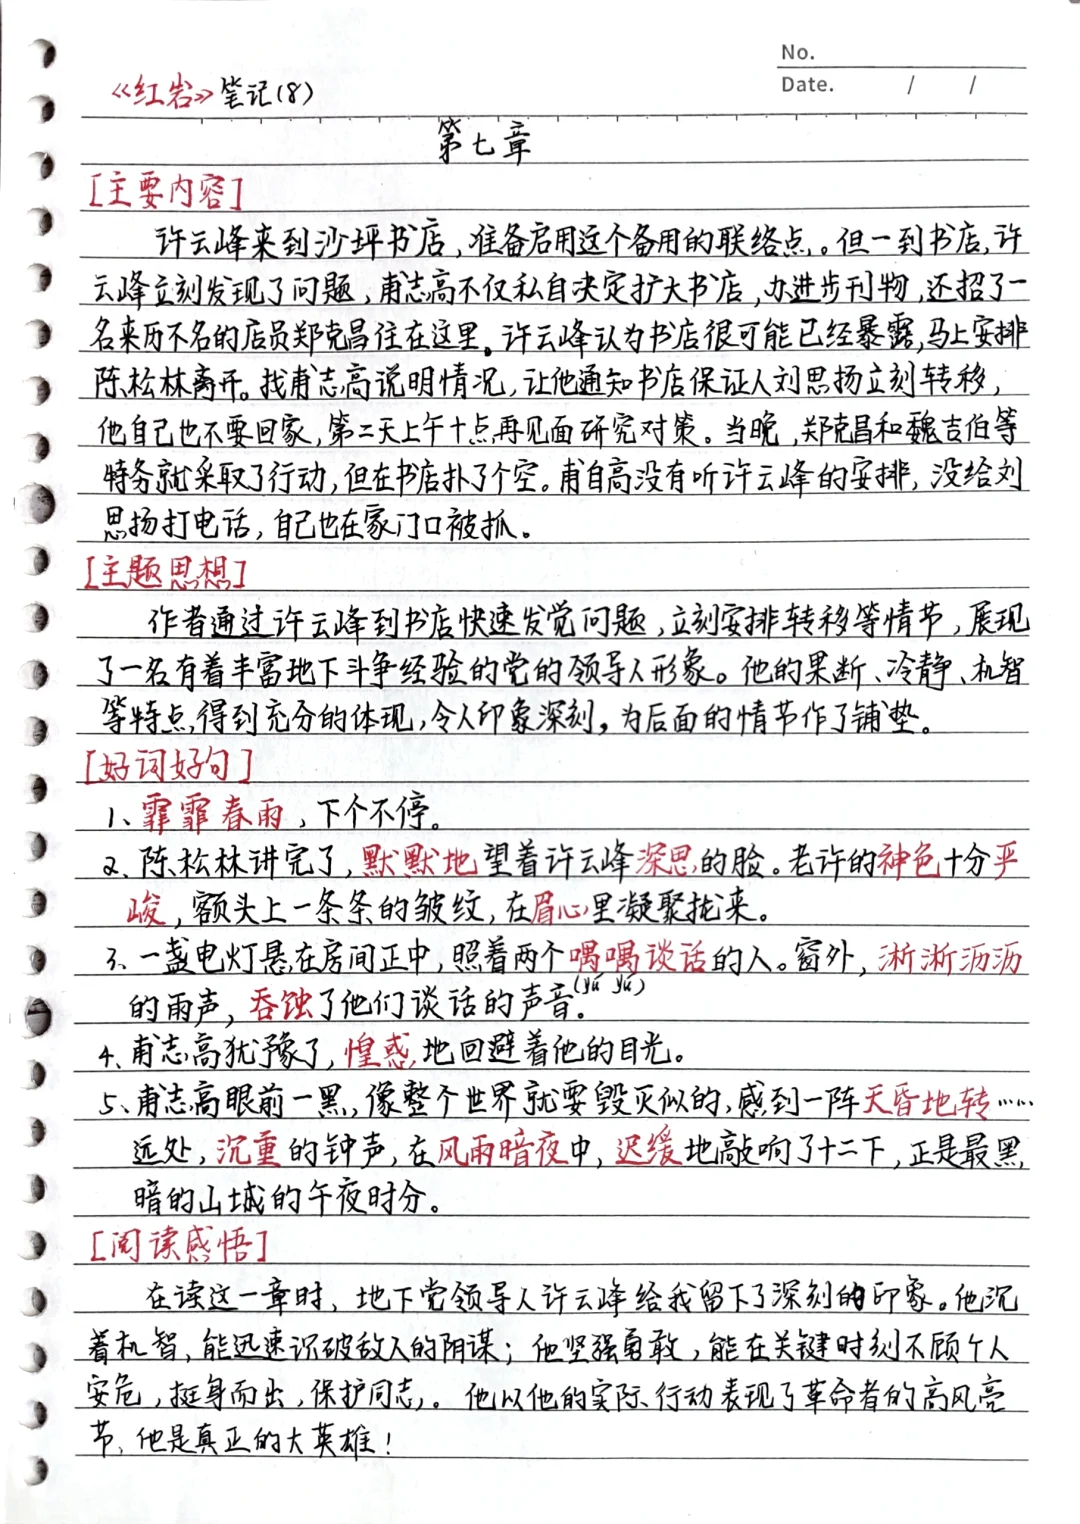 No.
Date. / /
《红岩》笔记(8)
第七章
[主要内容]
许云峰来到沙坪书店,准备启用这个备用的联络点。但一到书店,许
云峰立刻发现了问题,甫志高不仅私自决定扩大书店,办进步刊物,还招了一
名来历不名的店员郑克昌住在这里。许云峰认为书店很可能已经暴露,马上安排
陈松林离开。找甫志高说明情况,让他通知书店保证人刘思扬立刻转移,
他自己也不要回家,第二天上午十点再见面研究对策。当晚,郑克昌和魏吉伯等
特务就采取了行动,但在书店扑了个空。甫自高没有听许云峰的安排,没给刘
思扬打电话,自己也在家门口被抓。
[主题思想]
作者通过许云峰到书店快速发觉问题,立刻安排转移等情节,展现
了一名有着丰富地下斗争经验的党的领导人形象。他的果断、冷静、机智
等特点,得到充分的体现,令人印象深刻。为后面的情节作了铺垫。
[好词好句]
1、霏霏春雨,下个不停。
2、陈松林讲完了,默默地望着许云峰深思的脸。老许的神色十分严
峻,额头上一条条的皱纹,在眉心里凝聚拢来。
3、一盏电灯悬在房间正中,照着两个喁喁谈话的人。窗外,淅淅沥沥
的雨声,吞蚀了他们谈话的声音。(yú yú)
4、甫志高犹豫了,惶惑地回避着他的目光。
5、甫志高眼前一黑,像整个世界就要毁灭似的,感到一阵天昏地转……
远处,沉重的钟声,在风雨暗夜中,迟缓地敲响了十二下,正是最黑
暗的山城的午夜时分。
[阅读感悟]
在读这一章时,地下党领导人许云峰给我留下了深刻的印象。他沉
着机智,能迅速识破敌人的阴谋;他坚强勇敢,能在关键时刻不顾个人
安危,挺身而出,保护同志。他以他的实际行动表现了革命者的高风亮
节,他是真正的大英雄!